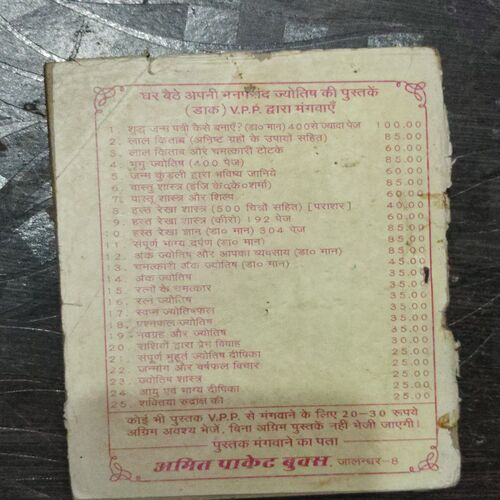 घर बैठे अपनी मनपसंद ज्योतिष की पुस्तकें
(डाक) V.P.P. द्वारा मंगवाएँ
1. शुद्ध जन्म पत्री कैसे बनाएँ? (डा० मान) 400 से ज्यादा पेज 100.00
2. लाल किताब (अनिष्ट ग्रहों के उपायों सहित) 85.00
3. लाल किताब और चमत्कारी टोटके 60.00
4. भृगु ज्योतिष (400 पेज) 85.00
5. जन्म कुंडली द्वारा भविष्य जानिये 60.00
6. वास्तु शास्त्र (इंजि के०के०शर्मा) 85.00
7. वास्तु शास्त्र और शिल्प 60.00
8. हस्त रेखा शास्त्र (500 चित्रों सहित) [पराशर] 40.00
9. हस्त रेखा शास्त्र (कीरो) 192 पेज 60.00
10. हस्त रेखा ज्ञान (डा० मान) 304 पेज 85.00
11. संपूर्ण भाग्य दर्पण (डा० मान) 85.00
12. अंक ज्योतिष और आपका व्यवसाय (डा० मान) 85.00
13. चमत्कारी अंक ज्योतिष (डा० मान) 45.00
14. अंक ज्योतिष 35.00
15. रत्नों के चमत्कार 35.00
16. रत्न ज्योतिष 35.00
17. स्वप्न ज्योतिष-फल 35.00
18. प्रश्नफल ज्योतिष 35.00
19. नवग्रह और ज्योतिष 35.00
20. राशियों द्वारा प्रेम विवाह 30.00
21. संपूर्ण मुहूर्त ज्योतिष दीपिका 25.00
22. जन्मांग और वर्षफल विचार 25.00
23. ज्योतिष शास्त्र 25.00
24. आयु एवं भाग्य दीपिका 25.00
25. शक्तियां रुद्राक्ष की 25.00
कोई भी पुस्तक V.P.P. से मंगवाने के लिए 20-30 रूपये
अग्रिम अवश्य भेजें, बिना अग्रिम पुस्तकें नहीं भेजी जाएगी।
पुस्तक मंगवाने का पता
अमित पाकेट बुक्स, जालन्धर-8